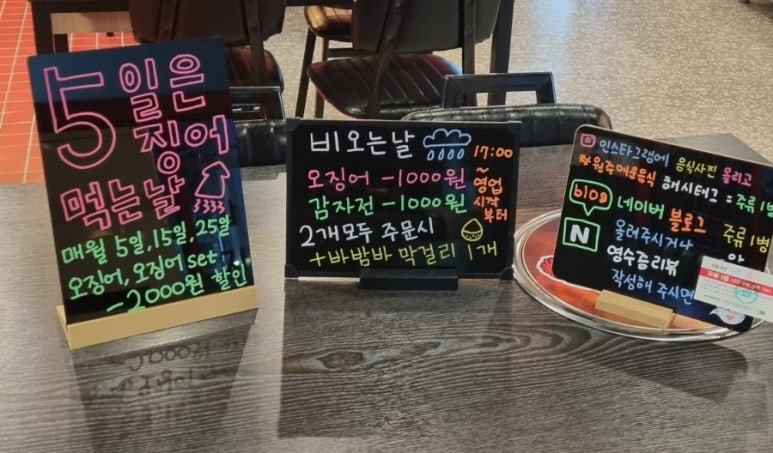 5일은
징어
먹는날
매월 5일, 15일, 25일
오징어, 오징어 set
-2000원 할인
비오는날
오징어 -1000원
감자전 -1000원
2개모두 주문시
+바밤바 막걸리 1개
17:00
~
영업
시작
부터
인스타그램에 음식사진 올리고
#원주매운음식 해시태그 : 주류 1병
blog 네이버 블로그 주류 1병
N 올려주시거나
영수증리뷰
작성해 주시면